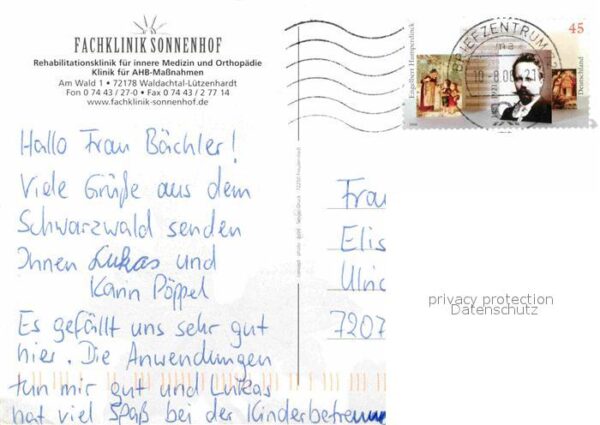 FACHKLINIK SONNENHOF
Rehabilitationsklinik für innere Medizin und Orthopädie
Klinik für AHB-Maßnahmen
Am Wald 1 • 72178 Waldachtal-Lützenhardt
Fon 0 74 43 / 27-0 • Fax 0 74 43 / 2 77 14
www.fachklinik-sonnenhof.de
Hallo Frau Bächler!
Viele Grüße aus dem
Schwarzwald senden
Ihnen Lukas und
Karin Pöppel
Es gefällt uns sehr gut
hier. Die Anwendungen
tun mir gut und Lukas
hat viel Spaß bei der Kinderbetreuung
Engelbert Humperdinck
45
Deutschland
BRIEFZENTRUM
Frau
Elis
Ulric
7207
privacy protection
Datenschutz